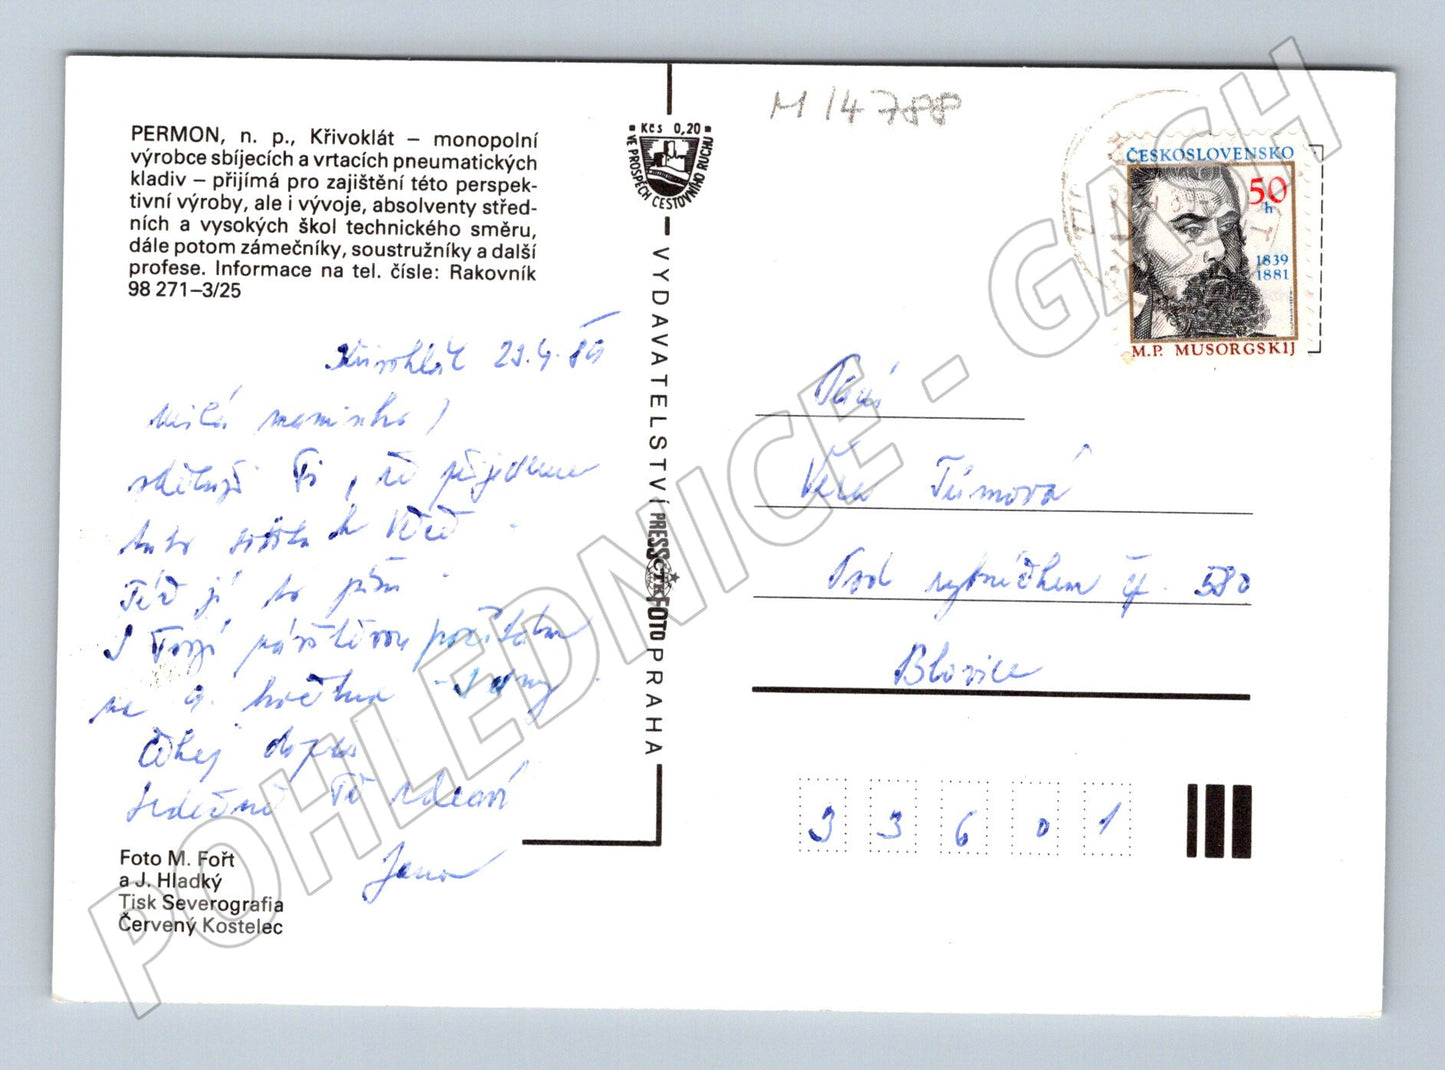 PERMON, n. p., Křivoklát – monopolní
výrobce sbíjecích a vrtacích pneumatických
kladiv – přijímá pro zajištění této perspek-
tivní výroby, ale i vývoje, absolventy střed-
ních a vysokých škol technického směru,
dále potom zámečníky, soustružníky a další
profese. Informace na tel. čísle: Rakovník
98 271–3/25
Křivoklát 23.4.89
Milá maminko,
sděluji Ti, že přijedeme
tuto sobotu
Teď já to píši.
S Tvojí návštěvou počítám
na 9. května
Čekej dopis
Srdečně Tě zdraví
Jana
Foto M. Fořt
a J. Hladký
Tisk Severografia
Červený Kostelec
Kčs 0,20
VE PROSPĚCH CESTOVNÍHO RUCHU
VYDAVATELSTVÍ PRESSFOTO PRAHA
ČTK
M 14788
ČESKOSLOVENSKO
50
h
1839
1881
M.P. MUSORGSKIJ
Paní
Věra Tůmová
Pod rybníčkem čp. 580
Blovice
33601
POHLEDNICE - GASH